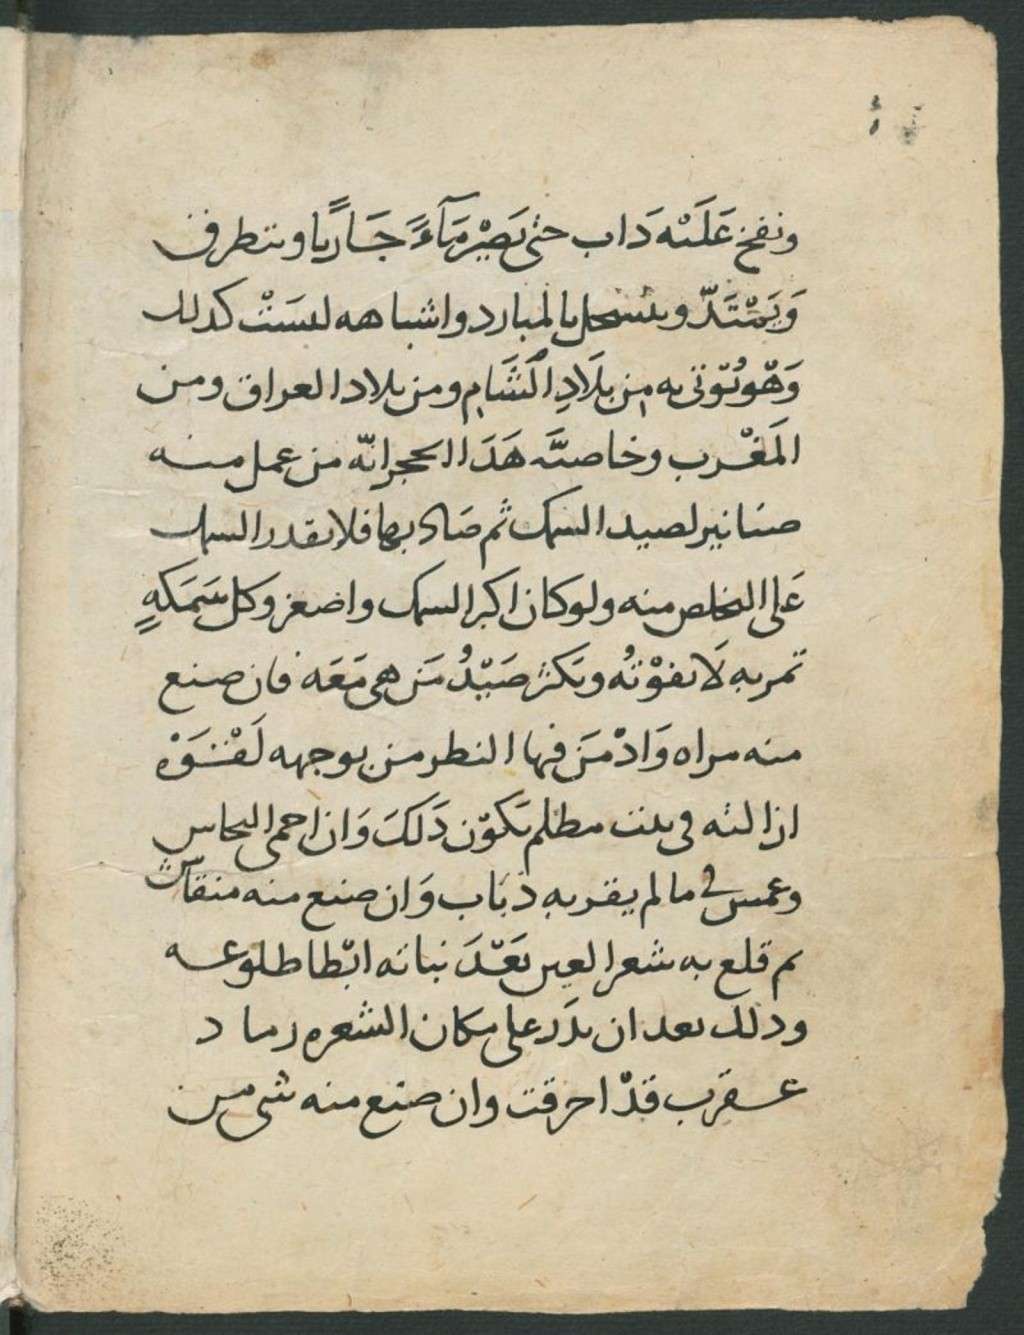 ونفخ عَلَيْه دَاب حتى يَصِيْر مَآءً جَاريًا ويتطرق
وَيَمْتَدّ وينسحل بالمبارد واشباهه ليسَتْ كذلك
وَهْو يُوتى به مِن بلَادِ الشَام ومن بلاد العراق ومن
المَغْرب وخاصيَّه هَذَا الحجر انّه من عمل منه
صنانير لصيد السمك ثم صَاد بها فلا يقدر السمك
عَلى التخلص منه ولو كان اكبر السمك واصغر وكل سَمَكهٍ
تمر به لَا تفوْتهُ ويَكثر صَيْدُ مَن هي مَعَه فان صنع
منه مراه وَادْمَن فيها النظر من بوجهه لَقْوَهْ
ازالته في بيت مظلم يَكوْن ذَلكَ وَان احمى النحاس
وغمس في ما لم يقربه ذبَاب وَان صنع منه منقاش
ثم قلع به شعر العين بَعْدَ نباته ابْطا طلوعه
وذلك بعد ان يذَر على مكان الشعره رماد
عقرب قدْ احرقت وان صنع منه شي من